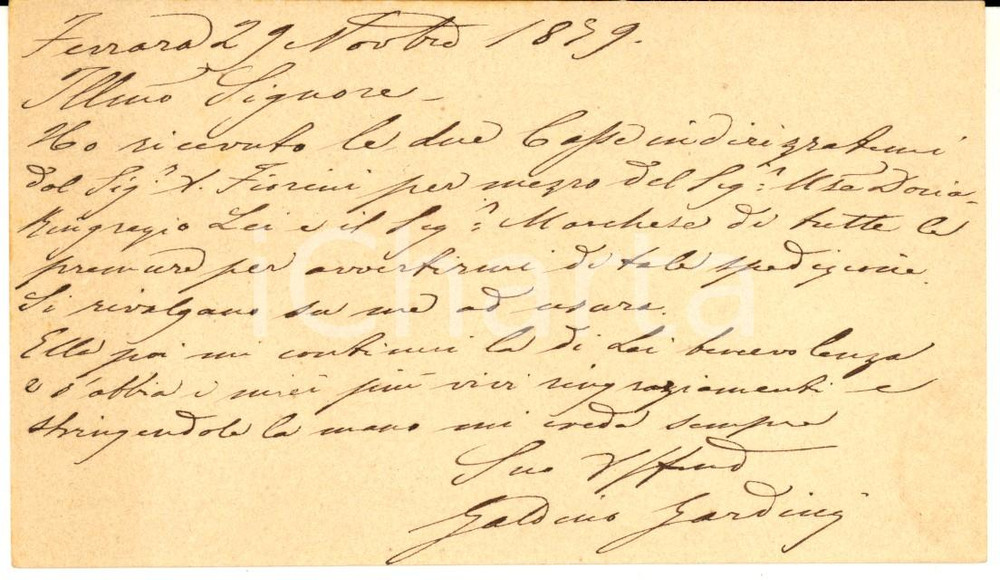 Ferrara 29 Novbre 1879.
Illmo Signore
Ho ricevuto le due Casse indirizzatemi
dal Sigr. A. Fiorini per mezzo del Sigr. Mse Doria
Ringrazio Lei e il Sigr. Marchese di tutte le
premure per avvertirmi di tale spedizione.
Si rivolgano su me ad usura.
Ella poi mi continui la di Lei benevolenza
e s'abbia i miei più vivi ringraziamenti e
stringendole la mano mi creda sempre
Suo Affmo
Galdino Gardini
iCharta